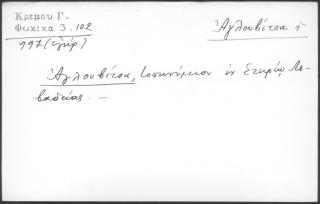 Κρεμου Γ.
Φωκικα 3, 102
Ἀγλουβίτσα ἡ
997 (ἑλλην.)
Ἀγλουβίτσα, τοπωνύμιον ἐν Στειρίῳ Λε-
βαδείας. —